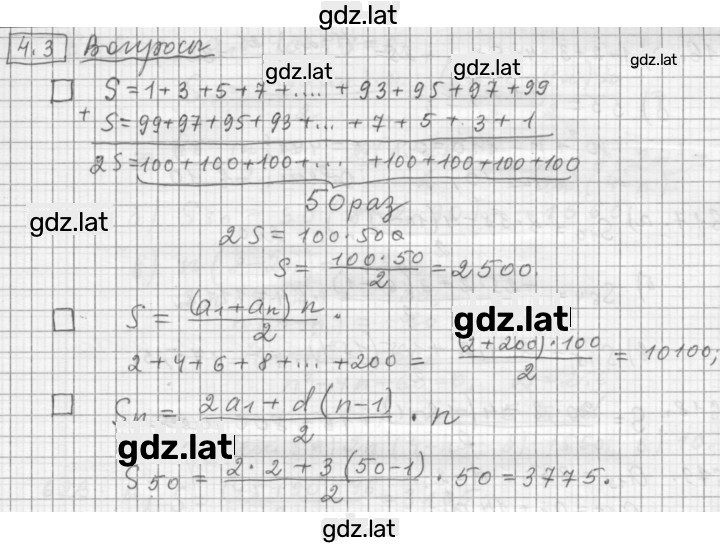 gdz.lat
4.3 Вопросы
gdz.lat gdz.lat gdz.lat
S = 1 + 3 + 5 + 7 + .... + 93 + 95 + 97 + 99
+ S = 99 + 97 + 95 + 93 + ... + 7 + 5 + 3 + 1
2S = 100 + 100 + 100 + ... + 100 + 100 + 100 + 100
50 раз
gdz.lat
2S = 100 · 50
S = (100 · 50)/2 = 2500.
S = ((a₁ + aₙ) n)/2 .
gdz.lat
2 + 4 + 6 + 8 + ... + 200 = ((2 + 200) · 100)/2 = 10100;
Sₙ = (2a₁ + d (n − 1))/2 · n
gdz.lat
S₅₀ = (2 · 2 + 3 (50 − 1))/2 · 50 = 3775.
gdz.lat